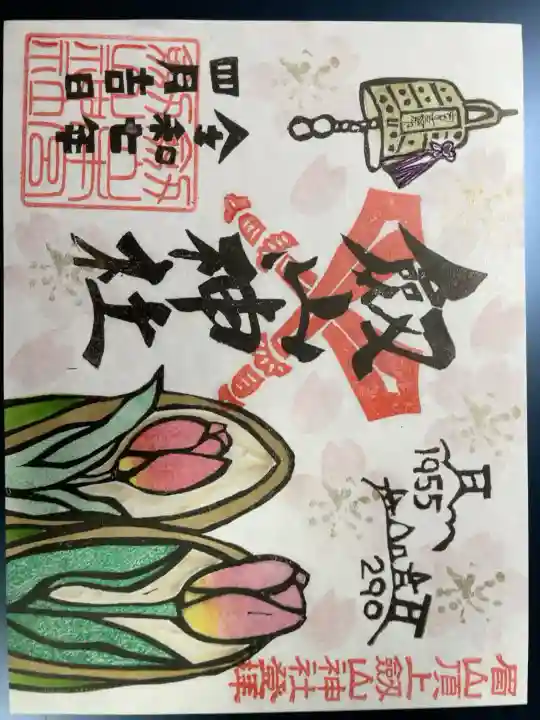 眉山頂上劔山神社登拝
1955
290
劔山神社
令和七年
四月吉日